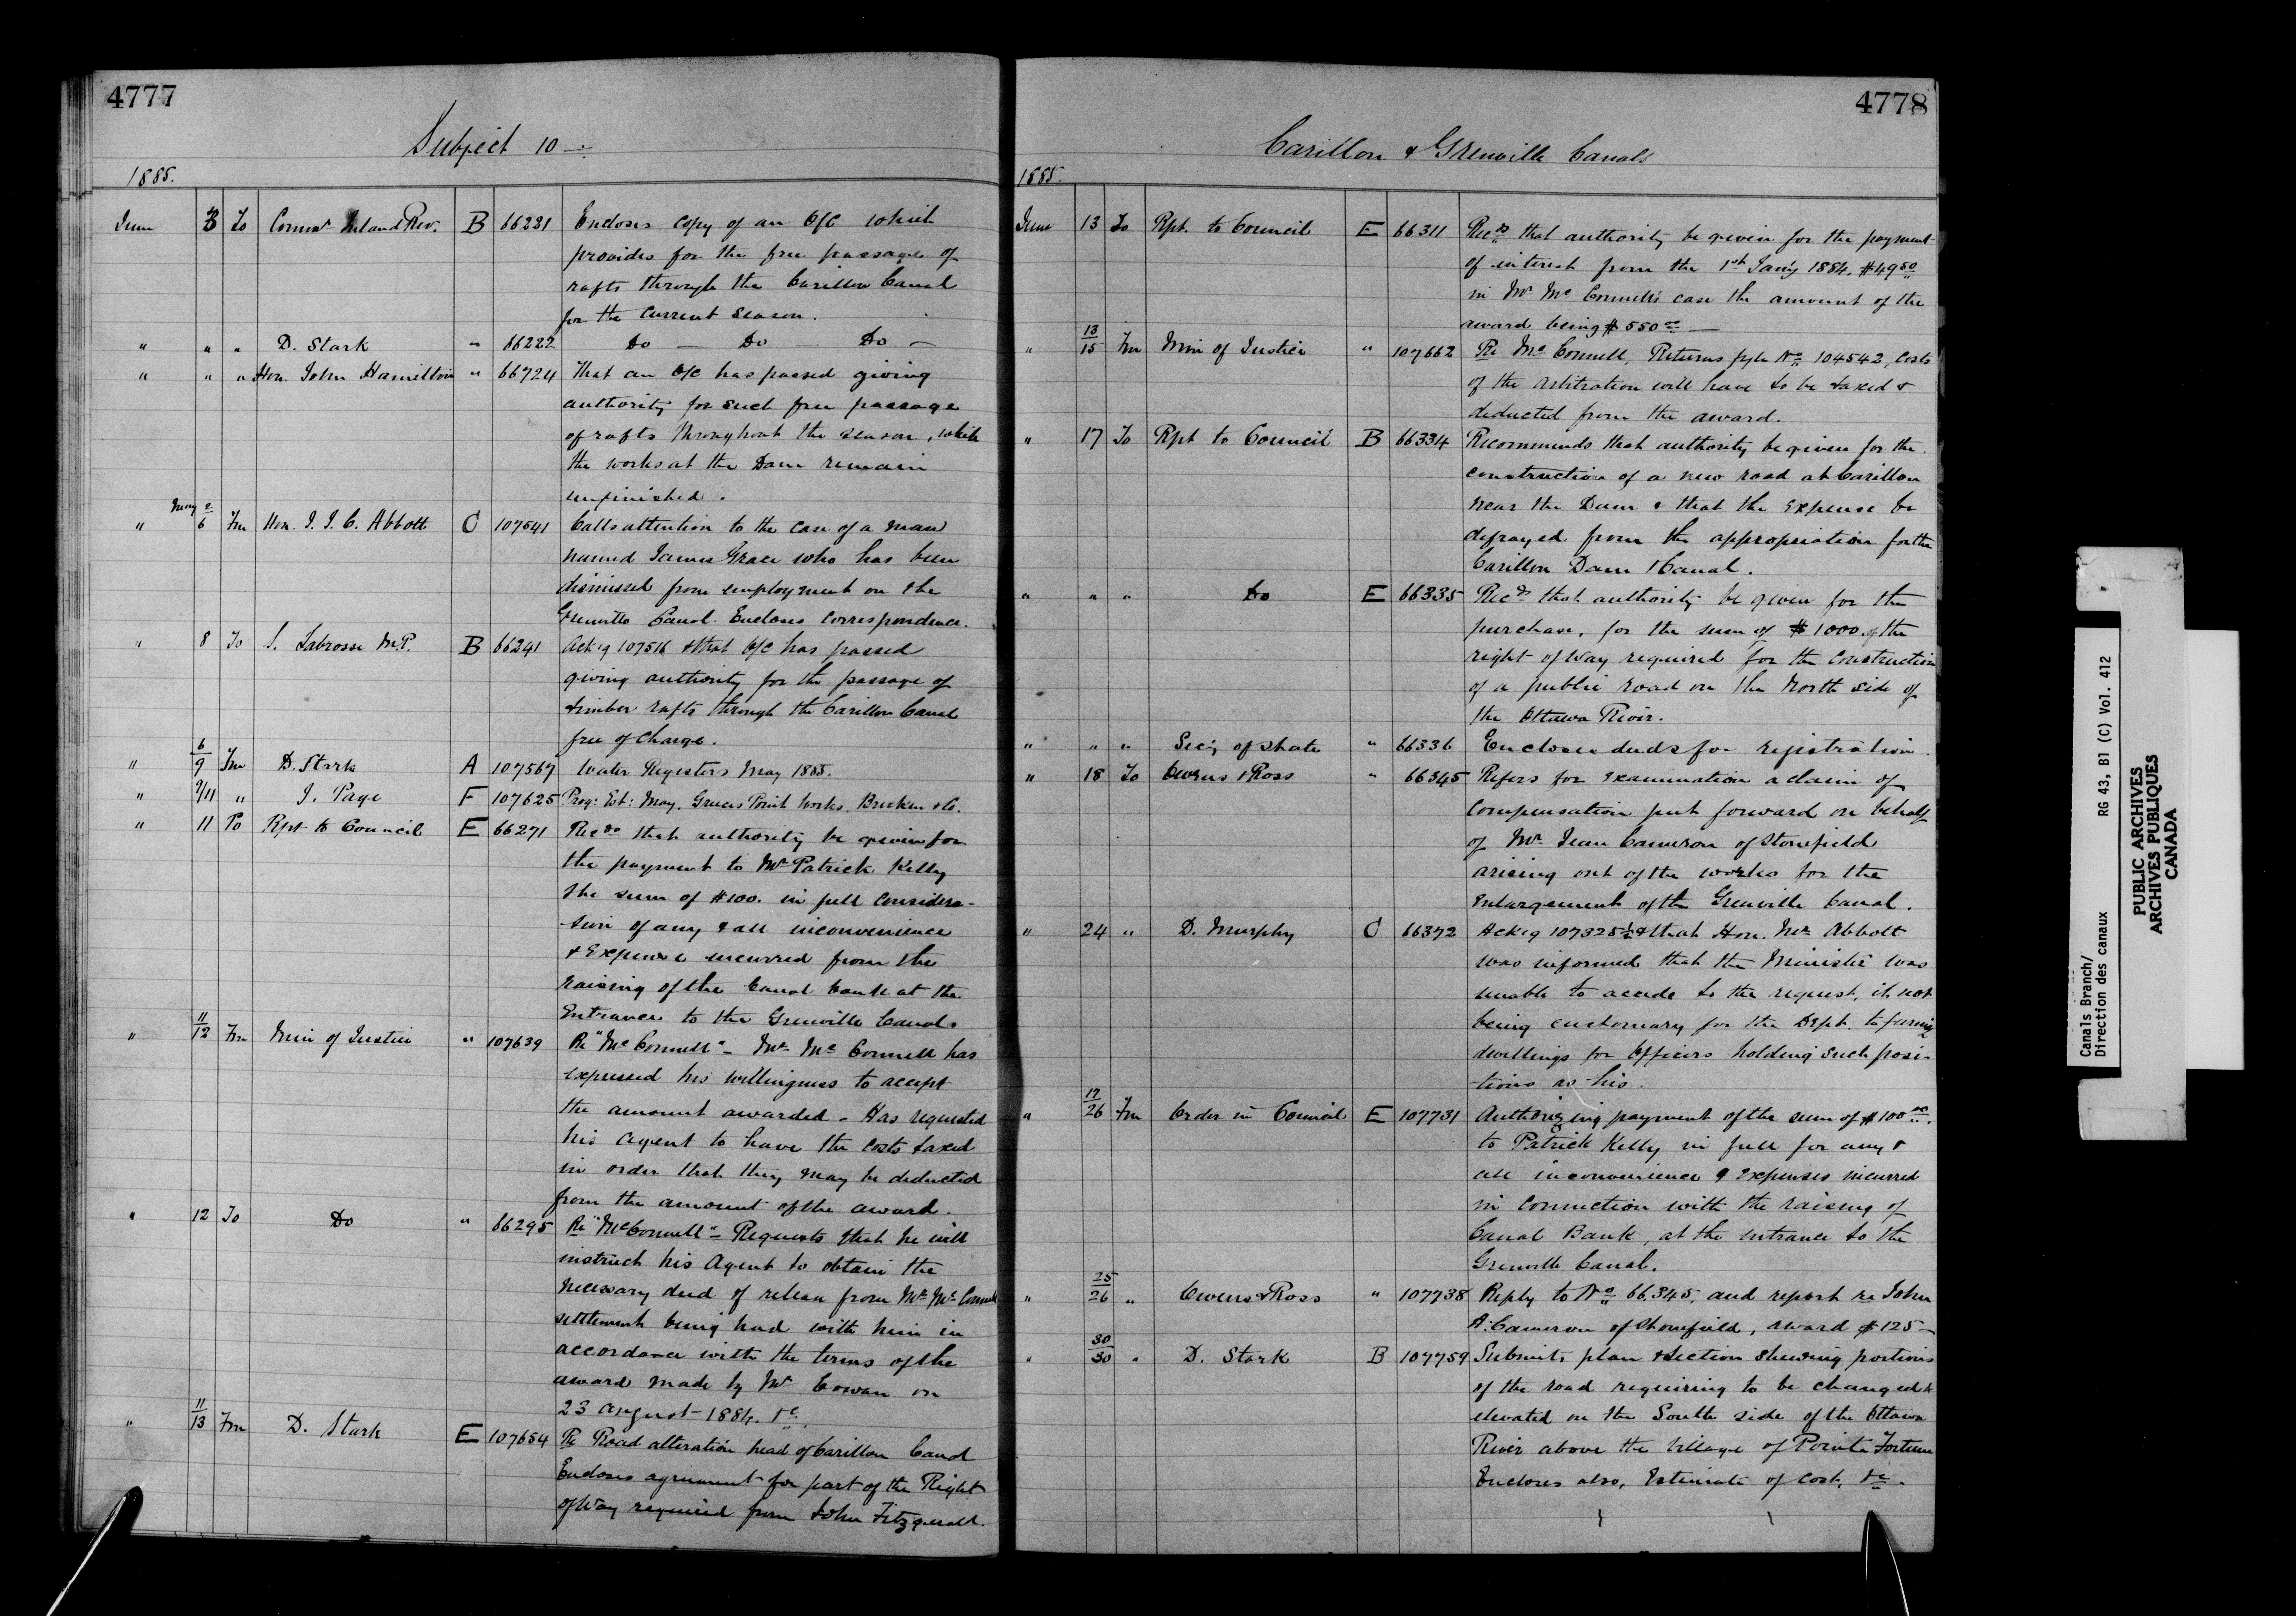 4777
Subject 10
1885.
June 3 To Commr Inland Rev. B 66221 Encloses copy of an O/C which
provides for the free passage of
rafts through the Carillon Canal
for the current season.
" " " D. Stark " 66222 Do — Do — Do —
" " " Hon. John Hamilton " 66724 That an O/C has passed giving
authority for such free passage
of rafts throughout the season, while
the works at the Dam remain
unfinished.
" May 2/6 Fm Hon. J. J. C. Abbott C 107541 Calls attention to the case of a man
named James Grace who has been
dismissed from employment on the
Grenville Canal. Encloses correspondence.
" 8 To S. Labrosse M.P. B 66241 Ackg 107516 & that O/C has passed
giving authority for the passage of
timber rafts through the Carillon Canal
free of charge.
" 6/9 Fm D. Stark A 107567 Water Registers May 1885.
" 9/11 " J. Page F 107625 Prog: Est: May. Greece's Point Works. Brecken & Co.
" 11 To Rpt to Council E 66271 Recds that authority be given for
the payment to Mr Patrick Kelly
the sum of $100. in full considera-
-tion of any & all inconvenience
& Expense incurred from the
raising of the Canal bank at the
Entrance to the Grenville Canal.
" 11/12 Fm Min of Justice " 107639 Re "McConnell" - Mr McConnell has
expressed his willingness to accept
the amount awarded - Has requested
his agent to have the costs taxed
in order that they may be deducted
from the amount of the award.
" 12 To Do " 66295 Re "McConnell" - Requests that he will
instruct his Agent to obtain the
necessary deed of release from Mr McConnell
settlement being had with him in
accordance with the terms of the
award made by Mr Cowan on
23 August 1884. &c.
" 11/13 Fm D. Stark E 107654 Re Road alteration head of Carillon Canal
Encloses agreement for part of the Right
of Way required from John Fitzgerald.
4778
Carillon & Grenville Canals
1885.
June 13 To Rpt. to Council E 66311 Recds that authority be given for the payment
of interest from the 1st Jan'y 1884, $49 50
in Mr McConnell's case the amount of the
award being $550 00 —
" 13/15 Fm Min of Justice " 107662 Re McConnell. Returns file No 104542, Costs
of the arbitration will have to be taxed &
deducted from the award.
" 17 To Rpt to Council B 66334 Recommends that authority be given for the
construction of a new road at Carillon
near the Dam & that the Expense be
defrayed from the appropriation for the
Carillon Dam & Canal.
" " " Do E 66335 Recds that authority be given for the
purchase, for the sum of $1000. of the
right of Way required for the construction
of a public road on the North side of
the Ottawa River.
" " " Sec'y of State " 66336 Encloses deeds for registration
" 18 To Owens & Ross " 66345 Refers for examination a claim of
compensation put forward on behalf
of Mr Cameron of Stonefield
arising out of the works for the
enlargement of the Grenville Canal.
" 24 " D. Murphy C 66372 Ackg 107325½ & that Hon. Mr Abbott
was informed that the Minister was
unable to accede to the request, it not
being customary for the Dept. to furnish
dwellings for Officers holding such posi-
-tions as his.
" 17/26 Fm Order in Council E 107731 Authorizing payment of the sum of $100 00.
to Patrick Kelly in full for any &
all inconvenience & expenses incurred
in connection with the raising of
Canal Bank, at the entrance to the
Grenville Canal.
" 25/26 " Owens & Ross " 107738 Reply to No 66.345, and report re John
A. Cameron of Stonefield, award $125 —
" 30/30 " D. Stark B 107759 Submits plan & section shewing portions
of the road requiring to be changed &
elevated on the South side of the Ottawa
River above the Village of Pointe Fortune
Encloses also, Estimate of Cost, &c.
Canals Branch/
Direction des canaux
RG 43, B1 (C) Vol. 412
PUBLIC ARCHIVES
ARCHIVES PUBLIQUES
CANADA